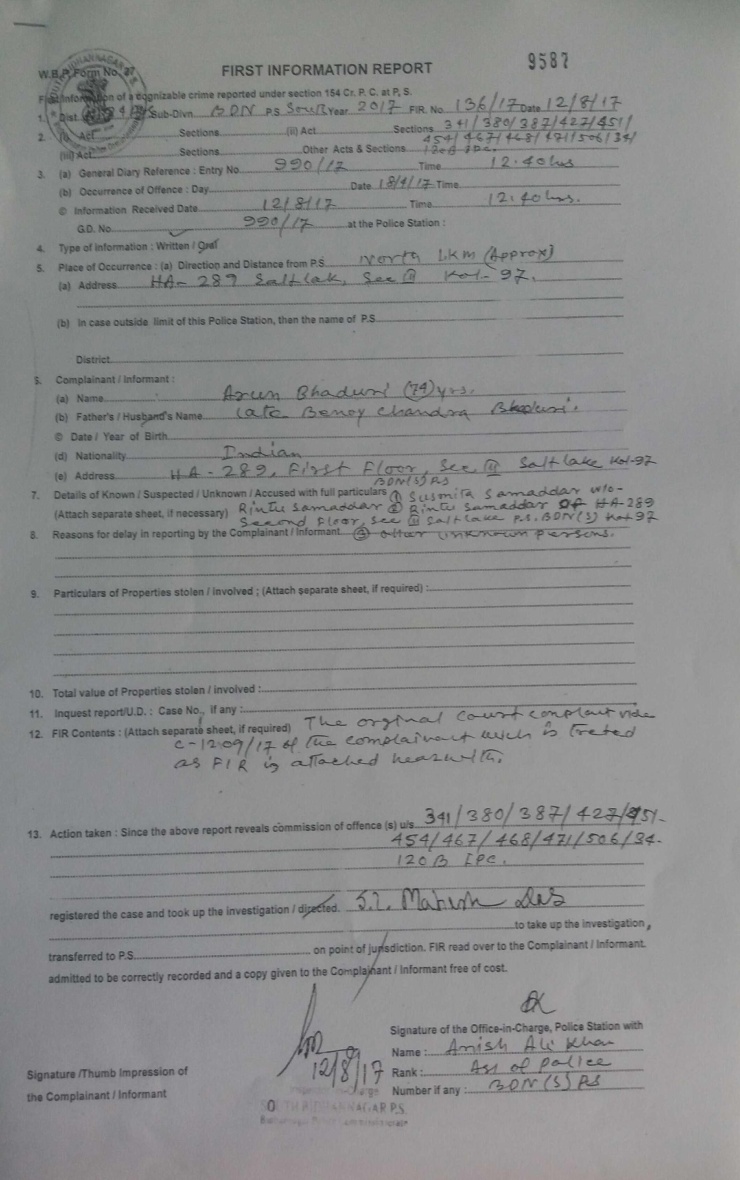 9587
W.B.P. Form No.
FIRST INFORMATION REPORT
First Information of a cognizable crime reported under section 154 Cr. P. C. at P, S.
1. Dist. Sub-Divn. BDN P.S South Year 2017 FIR. No. 136/17 Date 12/8/17
2. (i) Act Sections (ii) Act Sections 341/380/387/427/451/
454/467/468/471/506/34/
(iii) Act Sections Other Acts & Sections 120B IPC.
3. (a) General Diary Reference : Entry No. 990/17 Time 12.40 hrs
(b) Occurrence of Offence : Day Date 18/4/17 Time
© Information Received Date 12/8/17 Time 12.40 hrs.
G.D. No. 990/17 at the Police Station :
4. Type of information : Written / Oral
5. Place of Occurrence : (a) Direction and Distance from P.S. North 1.KM (Approx)
(a) Address HA- 289 Saltlak, Sec III Kol- 97.
(b) In case outside limit of this Police Station, then the name of P.S.
District
5. Complainant / Informant :
(a) Name Arun Bhaduri (74) yrs.
(b) Father's / Husband's Name Late Benoy Chandra Bhaduri.
© Date / Year of Birth
(d) Nationality Indian
(e) Address HA - 289, First Floor, Sec III Saltlake Kol-97
BDN(S) PS
7. Details of Known / Suspected / Unknown / Accused with full particulars ① Susmita Samaddar w/o-
(Attach separate sheet, if necessary) Rintu Samaddar ② Rintu Samaddar of HA-289
Second Floor, Sec III Saltlake P.S. BDN(S) Kol-97
8. Reasons for delay in reporting by the Complainant / Informant ③ other unknown persons.
9. Particulars of Properties stolen / Involved ; (Attach separate sheet, if required) :
10. Total value of Properties stolen / involved :
11. Inquest report/U.D. : Case No., if any :
12. FIR Contents : (Attach separate sheet, if required) The orginal Court complaint vide
C-1209/17 of the complainant which is treted
as FIR is attached hearwith.
13. Action taken : Since the above report reveals commission of offence (s) u/s 341/380/387/427/451-
454/467/468/471/506/34-
120B IPC.
registered the case and took up the investigation / directed. S.I. Das
to take up the investigation,
transferred to P.S. on point of jurisdiction. FIR read over to the Complainant / Informant.
admitted to be correctly recorded and a copy given to the Complainant / Informant free of cost.
Signature of the Office-in-Charge, Police Station with
12/8/17
Name : Anish Ali Khan
Rank : Ass of police
Number if any : BDN(S) PS
Signature /Thumb Impression of
the Complainant / Informant
SOUTH BIDHANNAGAR P.S.